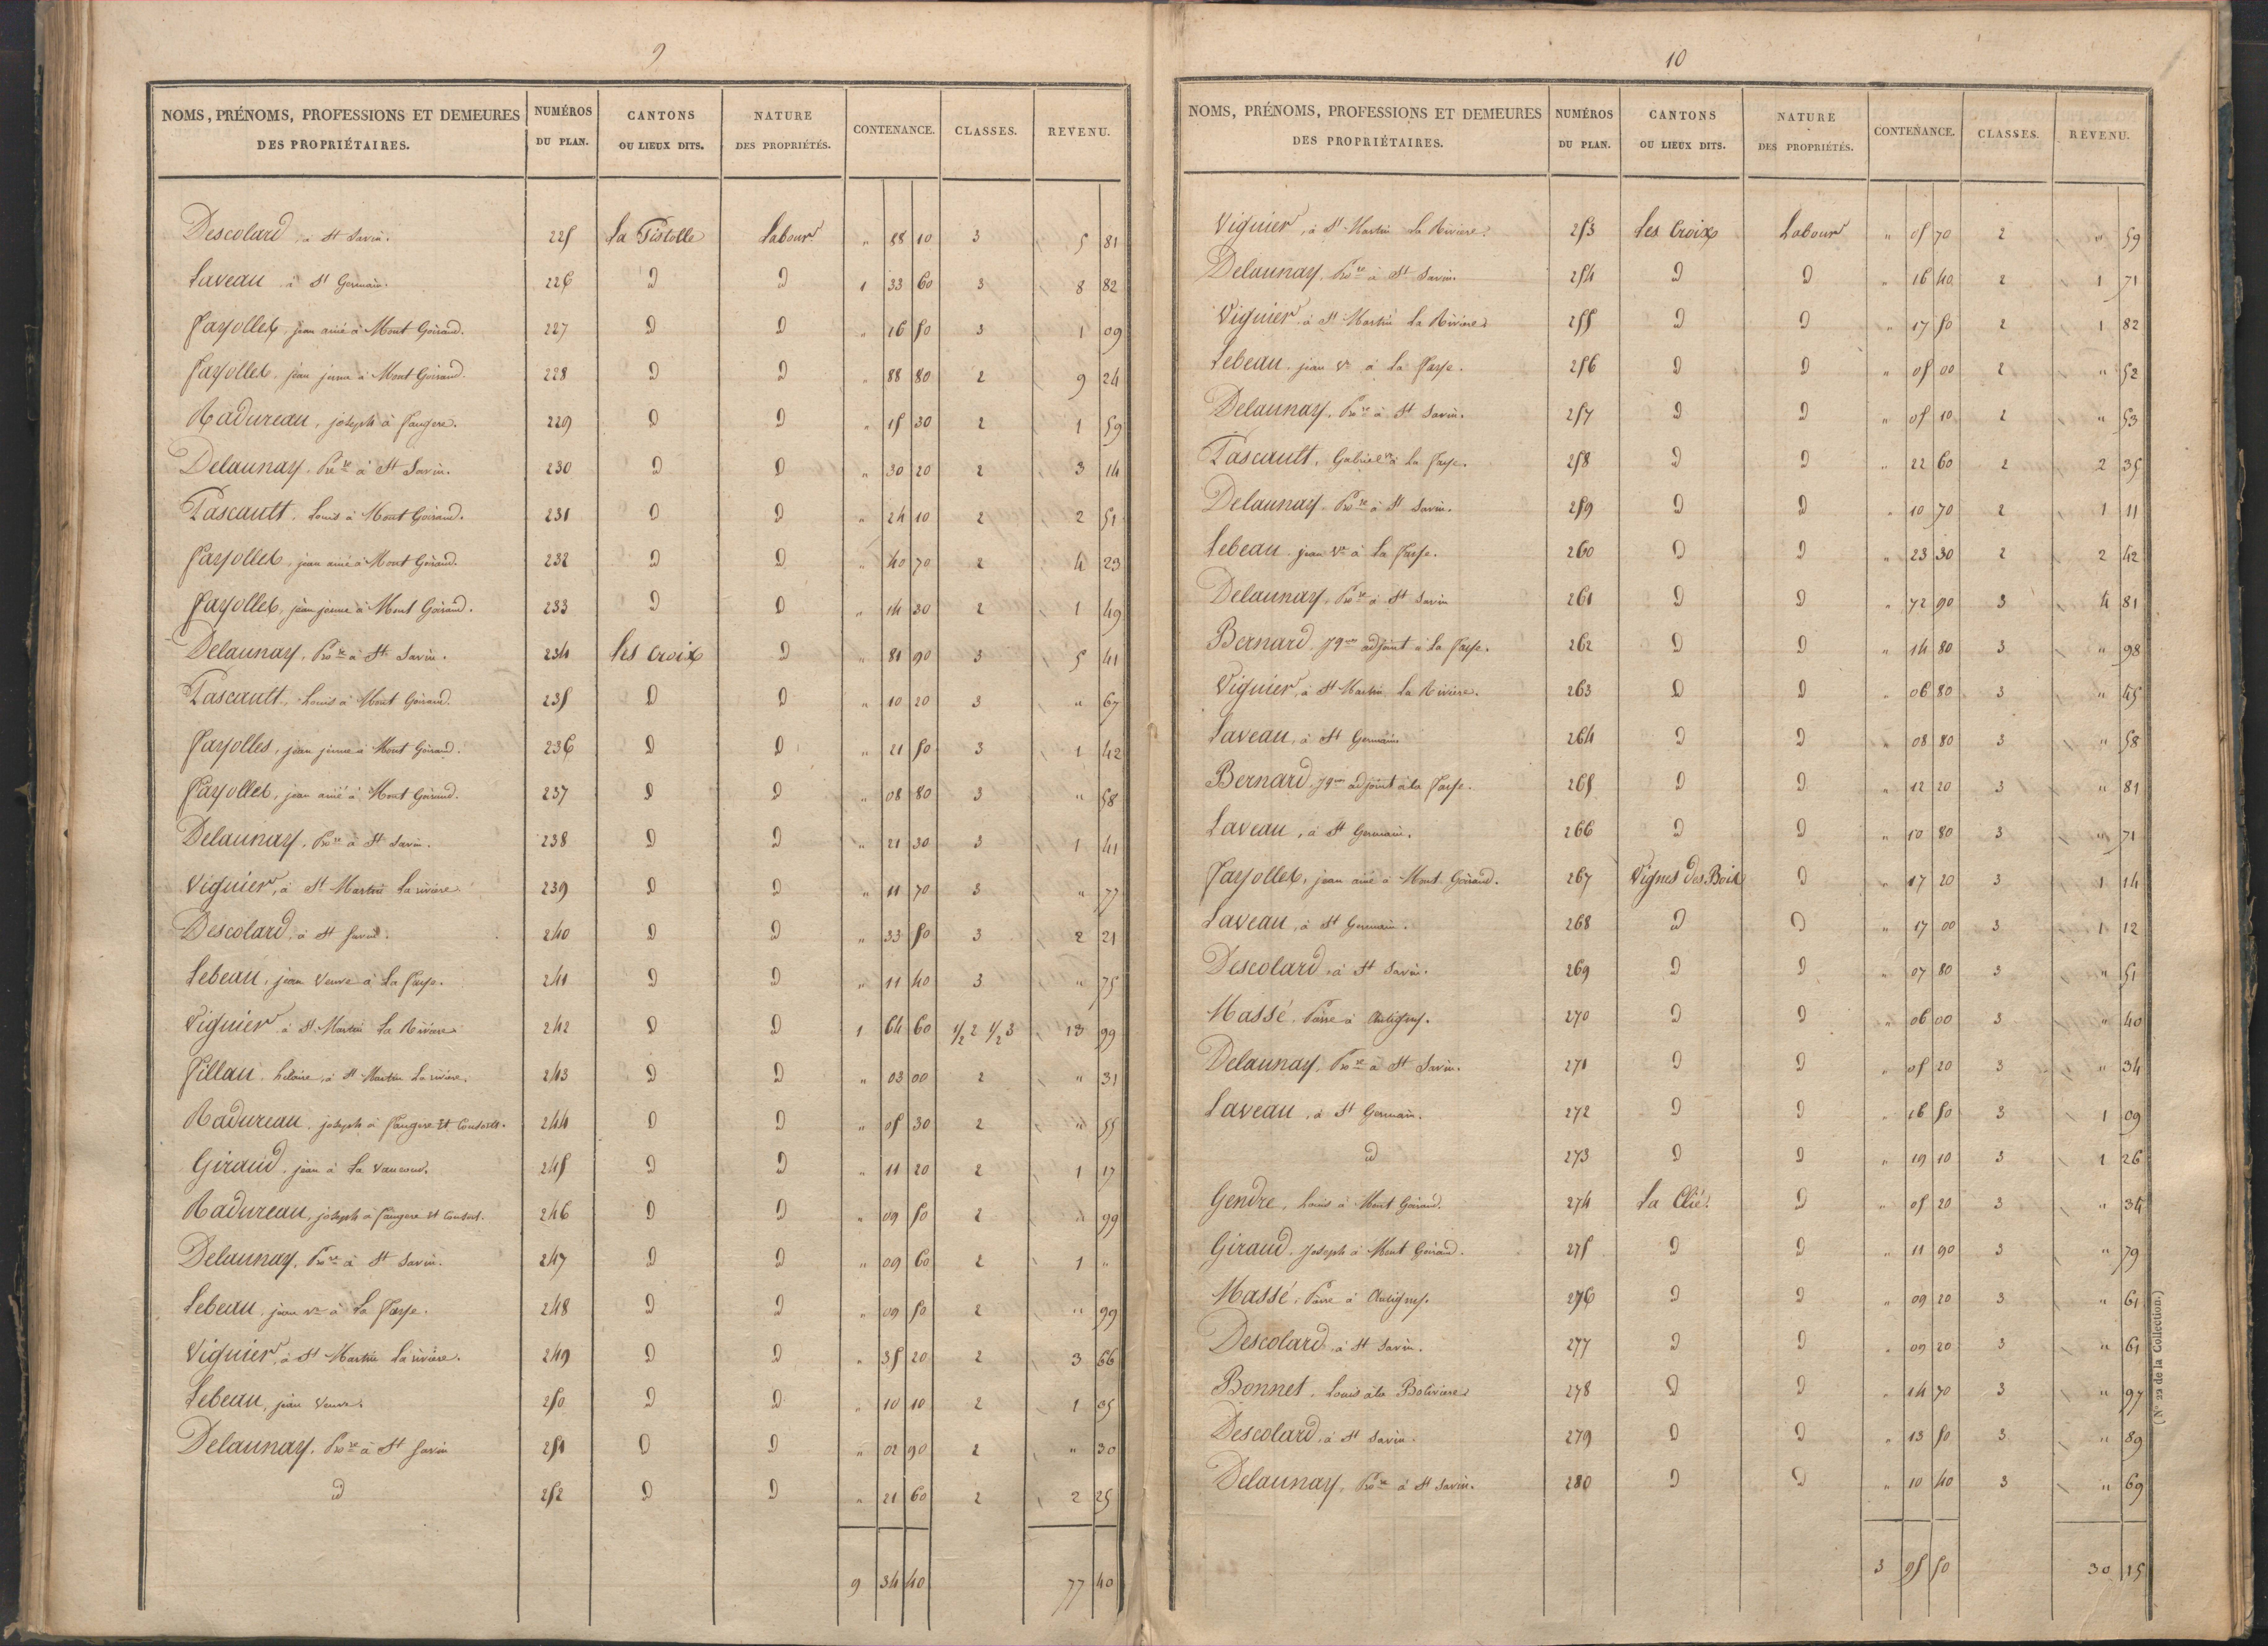 9
NOMS, PRÉNOMS, PROFESSIONS ET DEMEURES DES PROPRIÉTAIRES. NUMÉROS DU PLAN. CANTONS OU LIEUX DITS. NATURE DES PROPRIÉTÉS. CONTENANCE. CLASSES. REVENU.
Descolard, à St Savin. 225 La Pistolle Labour " 58 10 3 5 81
Laveau à St Germain. 226 D D 1 33 60 3 8 82
Fayolles, jean ainé à Mont Goirand. 227 D D " 16 50 3 1 09
Fayolles, jean jeune à Mont Goirand. 228 D D " 88 80 2 9 24
Radureau, joseph à Faugere. 229 D D " 15 30 2 1 59
Delaunay. Pre re à St Savin. 230 D D " 30 20 2 3 14
Pascault. Louis à Mont Goirand. 231 D D " 24 10 2 2 51
Fayolles, jean ainé à Mont Goirand. 232 D D " 40 70 2 4 23
Fayolles, jean jeune à Mont Goirand. 233 D D " 14 30 2 1 49
Delaunay, Pro re à St Savin. 234 Les Croix D " 81 90 3 5 41
Pascault, Louis à Mont Goirand. 235 D D " 10 20 3 " 67
Fayolles, jean jeune à Mont Goirand. 236 D D " 21 50 3 1 42
Fayolles, jean ainé à Mont Goirand. 237 D D " 08 80 3 " 58
Delaunay, Pro re à St Savin. 238 D D " 21 30 3 1 41
Viguier, à St Martin La rivière 239 D D " 11 70 3 " 77
Descolard, à St Savin. 240 D D " 33 50 3 2 21
Lebeau, jean Veuve à La Faye. 241 D D " 11 40 3 " 75
Viguier à St Martin La Rivière 242 D D 1 64 60 1/2 2 1/2 3 13 99
Fillau, hilaire, à St Martin La rivière. 243 D D " 03 00 2 " 31
Radureau, joseph à Faugere et Consorts. 244 D D " 05 30 2 " 55
Giraud, jean à La 245 D D " 11 20 2 1 17
Radureau, joseph à Faugere et Consort. 246 D D " 09 50 2 " 99
Delaunay, Pro re à St Savin. 247 D D " 09 60 2 1 "
Lebeau, jean Ve à La Faye. 248 D D " 09 50 2 " 99
Viguier, à St Martin La rivière. 249 D D " 35 20 2 3 66
Lebeau, jean Veuve. 250 D D " 10 10 2 1 05
Delaunay, Pro re à St Savin 251 D D " 02 90 2 " 30
id 252 D D " 21 60 2 2 25
9 34 40 77 40
10
NOMS, PRÉNOMS, PROFESSIONS ET DEMEURES DES PROPRIÉTAIRES. NUMÉROS DU PLAN. CANTONS OU LIEUX DITS. NATURE DES PROPRIÉTÉS. CONTENANCE. CLASSES. REVENU.
Viguier, à St Martin La Rivière. 253 Les Croix Labour " 05 70 2 " 59
Delaunay, Pro re à St Savin. 254 D D " 16 40 2 1 71
Viguier, à St Martin La Rivière 255 D D " 17 50 2 1 82
Lebeau, jean Ve à La Faye. 256 D D " 05 00 2 " 52
Delaunay, Pro re à St Savin. 257 D D " 05 10 2 " 53
Pascault, Gabriel à La Faye. 258 D D " 22 60 2 2 35
Delaunay Pro re à St Savin. 259 D D " 10 70 2 1 11
Lebeau, jean Ve à La Faye. 260 D D " 23 30 2 2 42
Delaunay, Pro re à St Savin 261 D D " 72 90 3 4 81
Bernard, adjoint à La Faye. 262 D D " 14 80 3 " 98
Viguier, à St Martin La Rivière. 263 D D " 06 80 3 " 45
Laveau, à St Germain 264 D D " 08 80 3 " 58
Bernard, adjoint à la Faye. 265 D D " 12 20 3 " 81
Laveau, à St Germain. 266 D D " 10 80 3 " 71
Fayolles, jean ainé à Mont Goirand. 267 Vignes des Bois D " 17 20 3 1 14
Laveau, à St Germain. 268 D D " 17 00 3 1 12
Descolard, à St Savin. 269 D D " 07 80 3 " 51
Massé, Pierre à Antigny. 270 D D " 06 00 3 " 40
Delaunay, Pro re à St Savin. 271 D D " 05 20 3 " 34
Laveau, à St Germain. 272 D D " 16 50 3 1 09
id 273 D D " 19 10 3 1 26
Gendre, Louis à Mont Goirand. 274 La Clié. D " 05 20 3 " 34
Giraud, Joseph à Mont Goirand. 275 D D " 11 90 3 " 79
Massé, Pierre à Antigny. 276 D D " 09 20 3 " 61
Descolard, à St Savin. 277 D D " 09 20 3 " 61
Bonnet, Louis à la Bolivière 278 D D " 14 70 3 " 97
Descolard, à St Savin. 279 D D " 13 50 3 " 89
Delaunay, Pro re à St Savin. 280 D D " 10 40 3 " 69
3 95 50 30 15
(N° 22 de la Collection.)